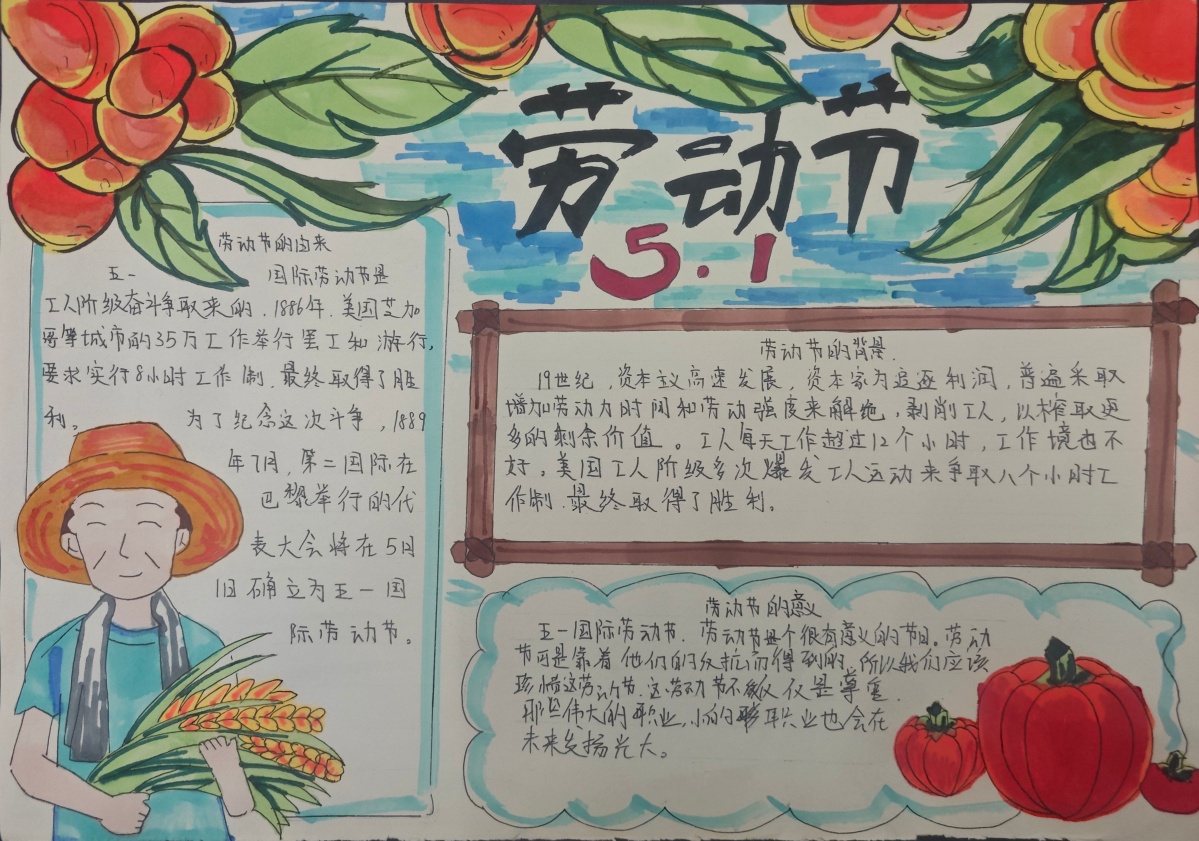 劳动节
5.1
劳动节的由来
五一 国际劳动节是
工人阶级奋斗争取来的.1886年.美国芝加
哥等城市的35万工作举行罢工和游行,
要求实行8小时工作制.最终取得了胜
利。 为了纪念这次斗争,1889
年7月,第二国际在
巴黎举行的代
表大会将在5月
1日确立为五一国
际劳动节。
劳动节的背景.
19世纪,资本主义高速发展,资本家为追逐利润,普遍采取
增加劳动力时间和劳动强度来解绝,剥削工人,以榨取更
多的剩余价值。工人每天工作超过12个小时,工作境也不
好。美国工人阶级多次爆发工人运动来争取八个小时工
作制.最终取得了胜利。
劳动节的意义
五一国际劳动节.劳动节是个很有意义的节日。劳动
节可是靠着他们的反抗而得到的.所以我们应该
珍惜这劳动节.这劳动节不仅仅是尊重
那些伟大的职业.小的职业也会在
未来发扬光大。